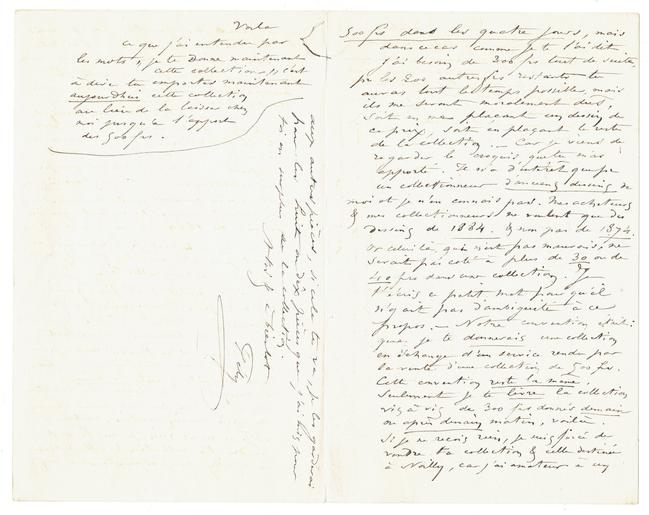 500 frs dans les quatre jours, mais
dans ce cas comme je te l'ai dit
j'ai besoin de 300 frs tout de suite,
pr les 200 autres frs restants tu
auras tout le temps possible, mais
ils me seront moralement dus,
soit en me plaçant un dessin de
ce prix, soit en plaçant le reste
de la collection. — Car je viens de
regarder le croquis que tu m'as
apporté. Il n'a d'intérêt que pr
un collectionneur d'anciens dessins de
moi et je n'en connais pas. Mes acheteurs
& mes collectionneurs ne veulent que des
dessins de 1884. & non pas de 1874.
Or celui là, qui n'est pas mauvais, ne
serait pas coté à plus de 30 ou de
40 frs dans une collection. Je
t'écris ce petit mot pour qu'il
n'y ait pas d'ambiguité à ce
propos. — Notre convention était:
que je te donnerais une collection
en échange d'un service rendu par
la vente d'une collection de 500 frs.
Cette convention reste la même.
Seulement je te livre la collection
vis à vis de 300 frs donnés demain
ou après demain matin, voilà.
Si je ne reçois rien, je suis forcé de
vendre ta collection & celle destinée
à Noilly, car j'ai amateur à
deux autres pièces, si cela te va, je les garderai
pour les huit ou dix pièces que j'ai
toi en de la collection.
à bientôt
Voilà
ce que j'ai entendu par
les mots, je te donne maintenant
cette collection, c'est
à dire tu emportes maintenant
aujourd'hui cette collection
au lieu de la laisser chez
moi jusqu'à l'apport
des 500 frs.